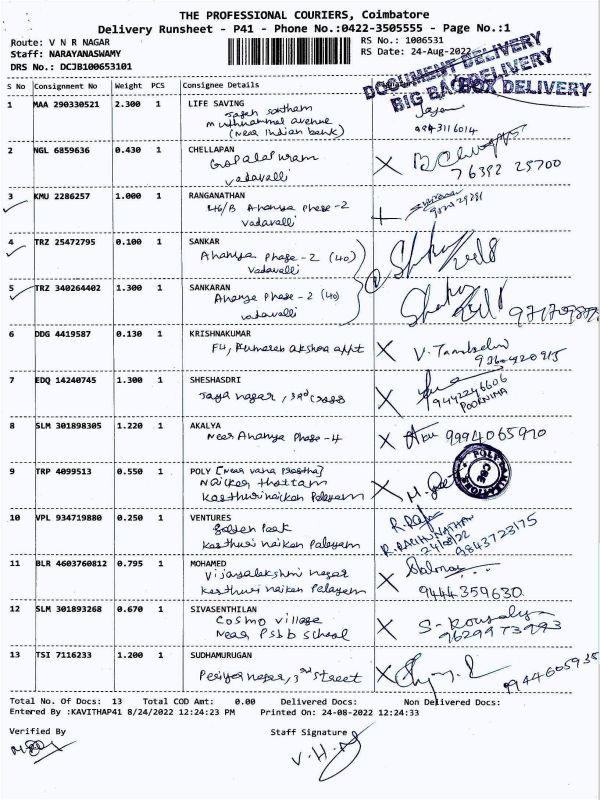 THE PROFESSIONAL COURIERS, Coimbatore
Delivery Runsheet - P41 - Phone No.:0422-3505555 - Page No.:1
Route: V N R NAGAR
Staff: NARAYANASWAMY
DRS No.: DCJB100653101
RS No.: 1006531
RS Date: 24-Aug-2022
DOCUMENT DELIVERY
BIG BAG DELIVERY
BOX DELIVERY
S No Consignment No Weight PCS Consignee Details
1 MAA 290330521 2.300 1 LIFE SAVING
muthuammal avenue
(Near Indian bank)
9843116014
2 NGL 6859636 0.430 1 CHELLAPAN
Gopalapuram
Vadavalli
76392 25700
3 KMU 2286257 1.000 1 RANGANATHAN
46/B Ananya Phase-2
Vadavalli
4 TRZ 25472795 0.100 1 SANKAR
Ananya Phase-2 (40)
Vadavalli
5 TRZ 340264402 1.300 1 SANKARAN
Ananya Phase-2 (40)
Vadavalli
6 DDG 4419587 0.130 1 KRISHNAKUMAR
F4, Kumaran akshoa appt
7 EDQ 14240745 1.300 1 SHESHASDRI
Jaya nagar, 3rd cross
9442246606
POORNIMA
8 SLM 301898305 1.220 1 AKALYA
Near Ananya Phase-4
9994065970
9 TRP 4099513 0.550 1 POLY [Near vana prastha]
Naicker thottam
Kasthurinaicken Palayam
10 VPL 934719880 0.250 1 VENTURES
Golden Park
Kasthuri naiken Palayam
R. RAGHUNATHAN
24/08/22
9843723175
11 BLR 4603760812 0.795 1 MOHAMED
Vijayalakshmi nagar
Kasthuri naiken Palayam
9444359630
12 SLM 301893268 0.670 1 SIVASENTHILAN
Cosmo village
Near PSBB school
S- Kousalya
9629973993
13 TSI 7116233 1.200 1 SUDHAMURUGAN
Periyar nagar, 3rd street
9944605935
Total No. Of Docs: 13 Total COD Amt: 0.00 Delivered Docs: Non Delivered Docs:
Entered By :KAVITHAP41 8/24/2022 12:24:23 PM Printed On: 24-08-2022 12:24:33
Verified By
Staff Signature